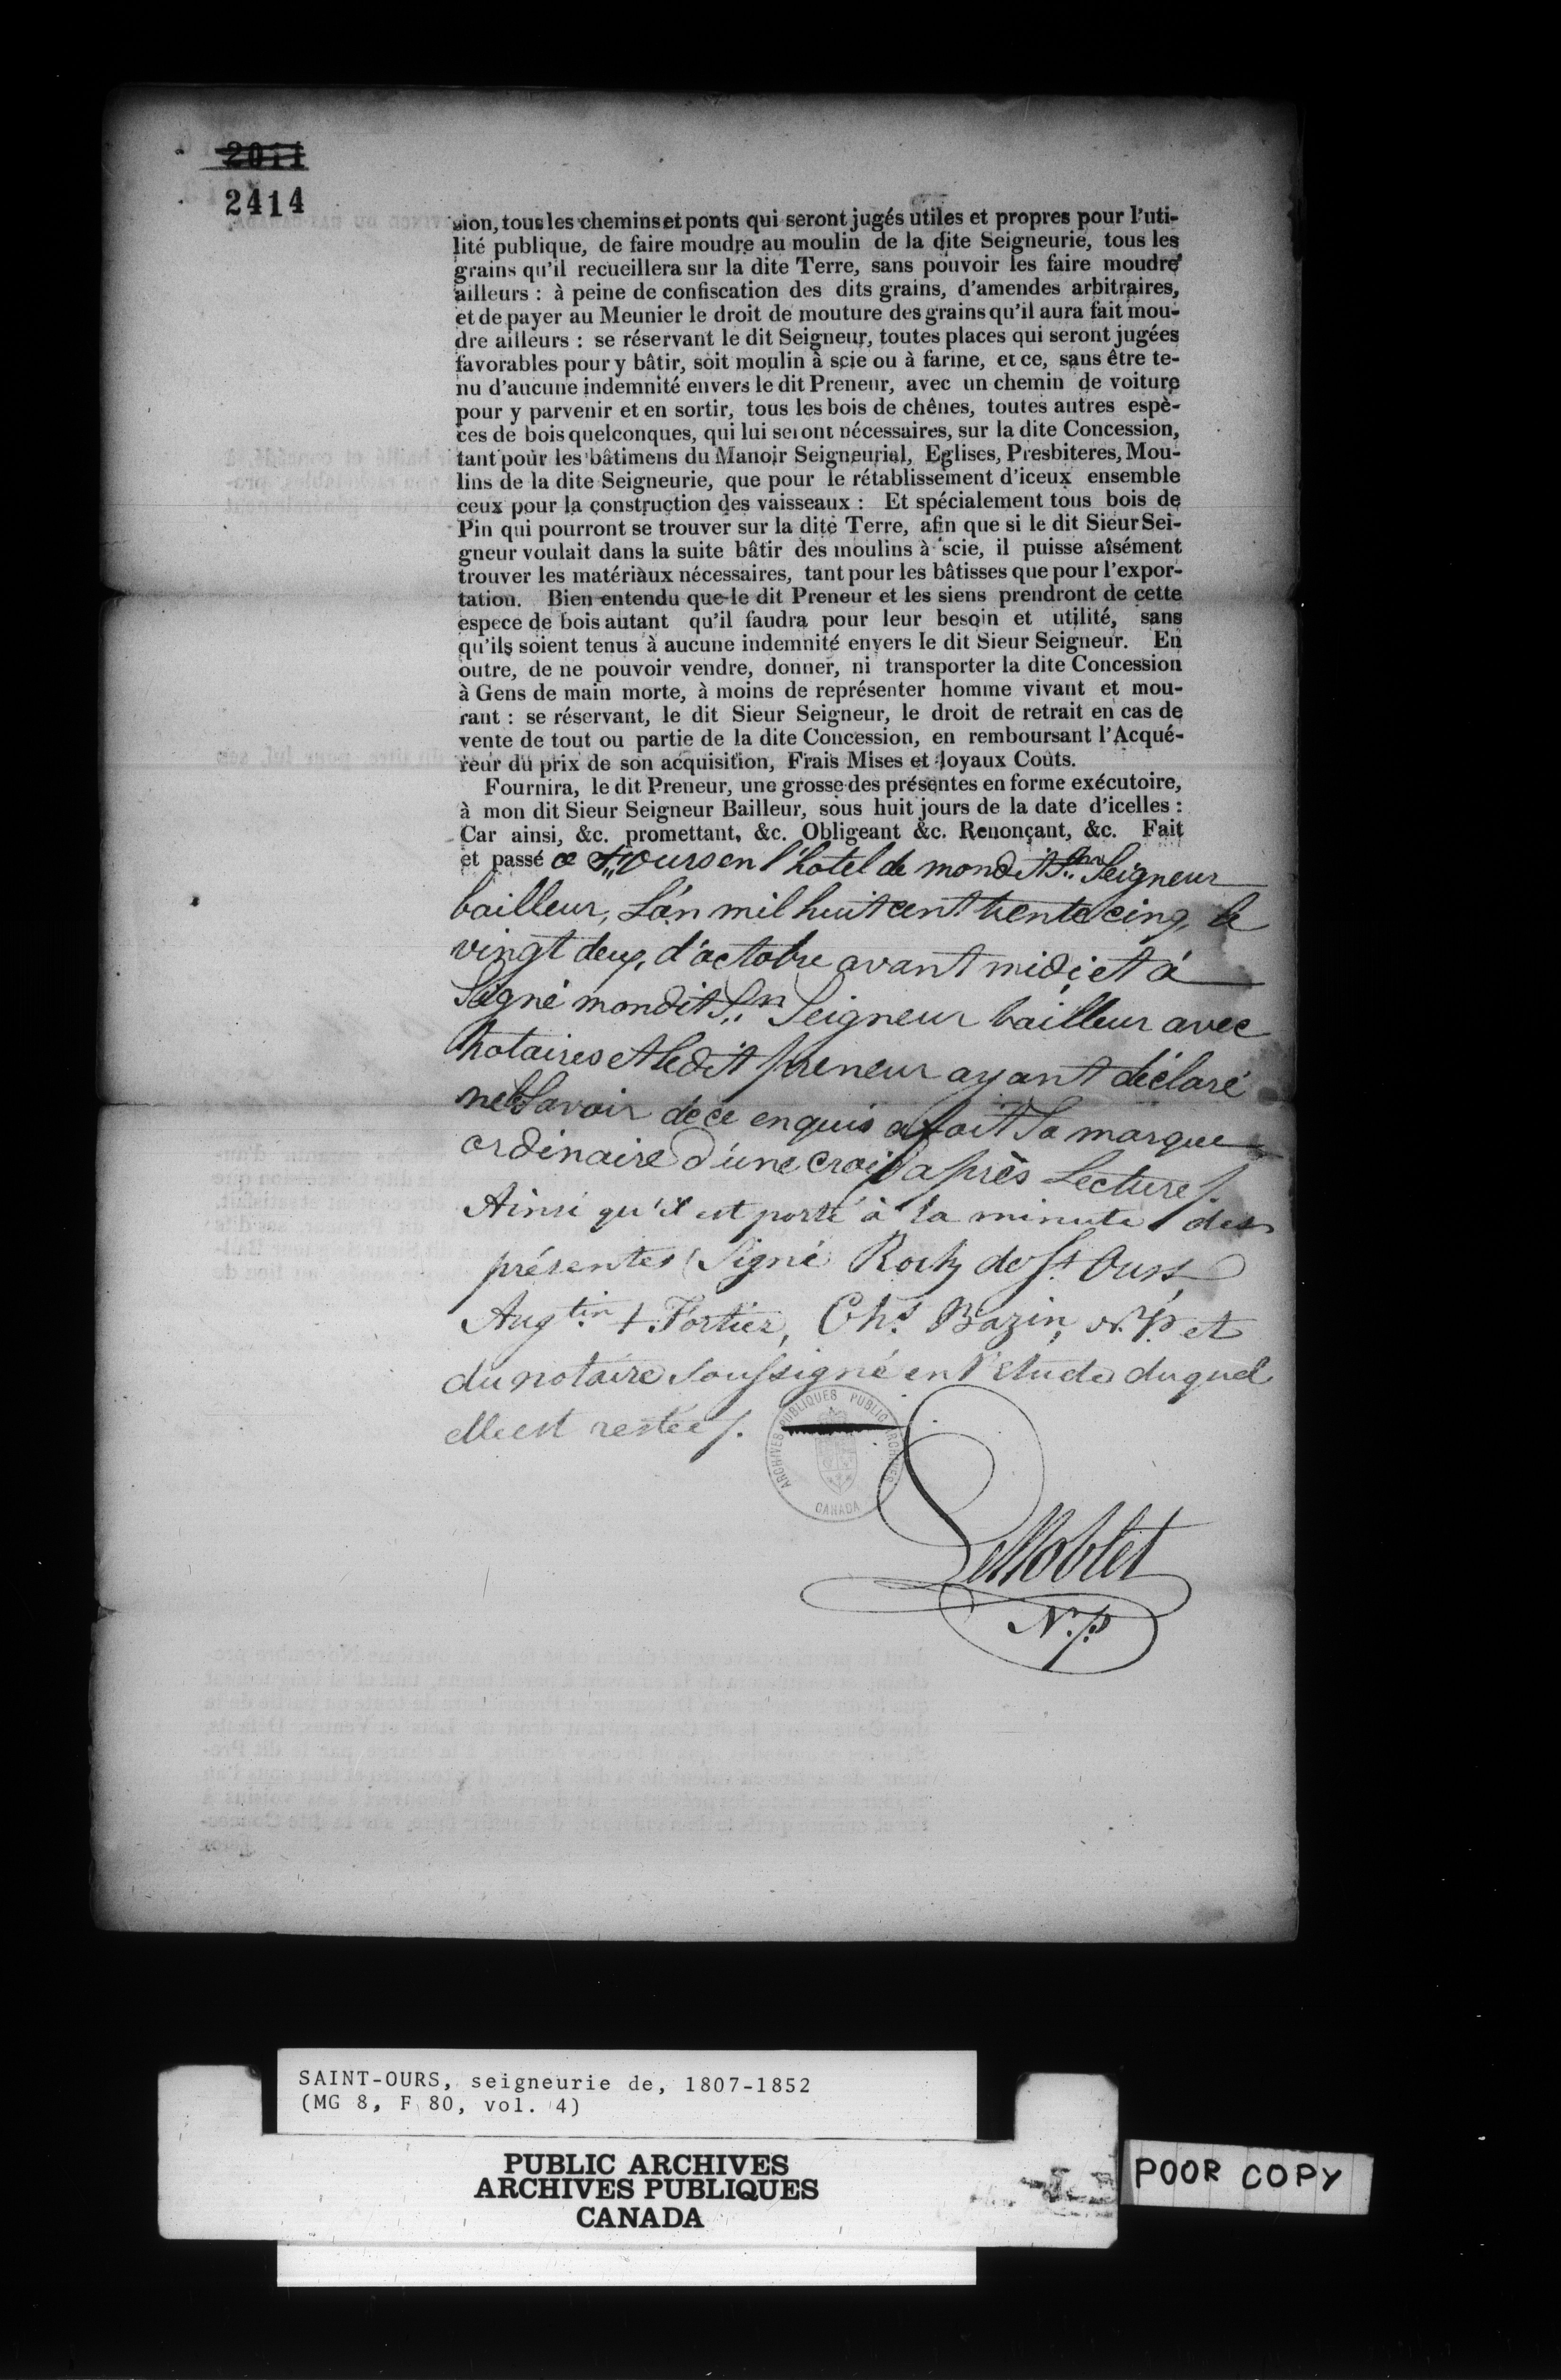 2011
2414
sion, tous les chemins et ponts qui seront jugés utiles et propres pour l'uti-
lité publique, de faire moudre au moulin de la dite Seigneurie, tous les
grains qu'il recueillera sur la dite Terre, sans pouvoir les faire moudre
ailleurs : à peine de confiscation des dits grains, d'amendes arbitraires,
et de payer au Meunier le droit de mouture des grains qu'il aura fait mou-
dre ailleurs : se réservant le dit Seigneur, toutes places qui seront jugées
favorables pour y bâtir, soit moulin à scie ou à farine, et ce, sans être te-
nu d'aucune indemnité envers le dit Preneur, avec un chemin de voiture
pour y parvenir et en sortir, tous les bois de chênes, toutes autres espè-
ces de bois quelconques, qui lui seront nécessaires, sur la dite Concession,
tant pour les bâtimens du Manoir Seigneurial, Eglises, Presbiteres, Mou-
lins de la dite Seigneurie, que pour le rétablissement d'iceux ensemble
ceux pour la construction des vaisseaux : Et spécialement tous bois de
Pin qui pourront se trouver sur la dite Terre, afin que si le dit Sieur Sei-
gneur voulait dans la suite bâtir des moulins à scie, il puisse aîsément
trouver les matériaux nécessaires, tant pour les bâtisses que pour l'expor-
tation. Bien entendu que le dit Preneur et les siens prendront de cette
espece de bois autant qu'il faudra pour leur besoin et utilité, sans
qu'ils soient tenus à aucune indemnité envers le dit Sieur Seigneur. En
outre, de ne pouvoir vendre, donner, ni transporter la dite Concession
à Gens de main morte, à moins de représenter homme vivant et mou-
rant : se réservant, le dit Sieur Seigneur, le droit de retrait en cas de
vente de tout ou partie de la dite Concession, en remboursant l'Acqué-
reur du prix de son acquisition, Frais Mises et loyaux Coûts.
Fournira, le dit Preneur, une grosse des présentes en forme exécutoire,
à mon dit Sieur Seigneur Bailleur, sous huit jours de la date d'icelles :
Car ainsi, &c. promettant, &c. Obligeant &c. Renonçant, &c. Fait
et passé a St Ours en l'hotel de mondit Sr Seigneur
bailleur, L'an mil huit cent trente cinq, le
vingt deux d'octobre avant midi, et à
Signé mondit Sr Seigneur bailleur avec
Notaires et ledit preneur ayant déclaré
ne Savoir de ce enquis a fait Sa marque
ordinaire d'une croix après Lecture /.
Ainsi qu'il est porté à la minute des
présentes Signé Roch de St Ours
Augtin + Fortier, Chs Bazin, N.P et
du notaire Soussigné en l'étude duquel
elle est restée /.
ARCHIVES PUBLIQUES PUBLIC ARCHIVES
CANADA
LeNoblet
N.P.
SAINT-OURS, seigneurie de, 1807-1852
(MG 8, F 80, vol. 4)
PUBLIC ARCHIVES
ARCHIVES PUBLIQUES
CANADA
POOR COPY